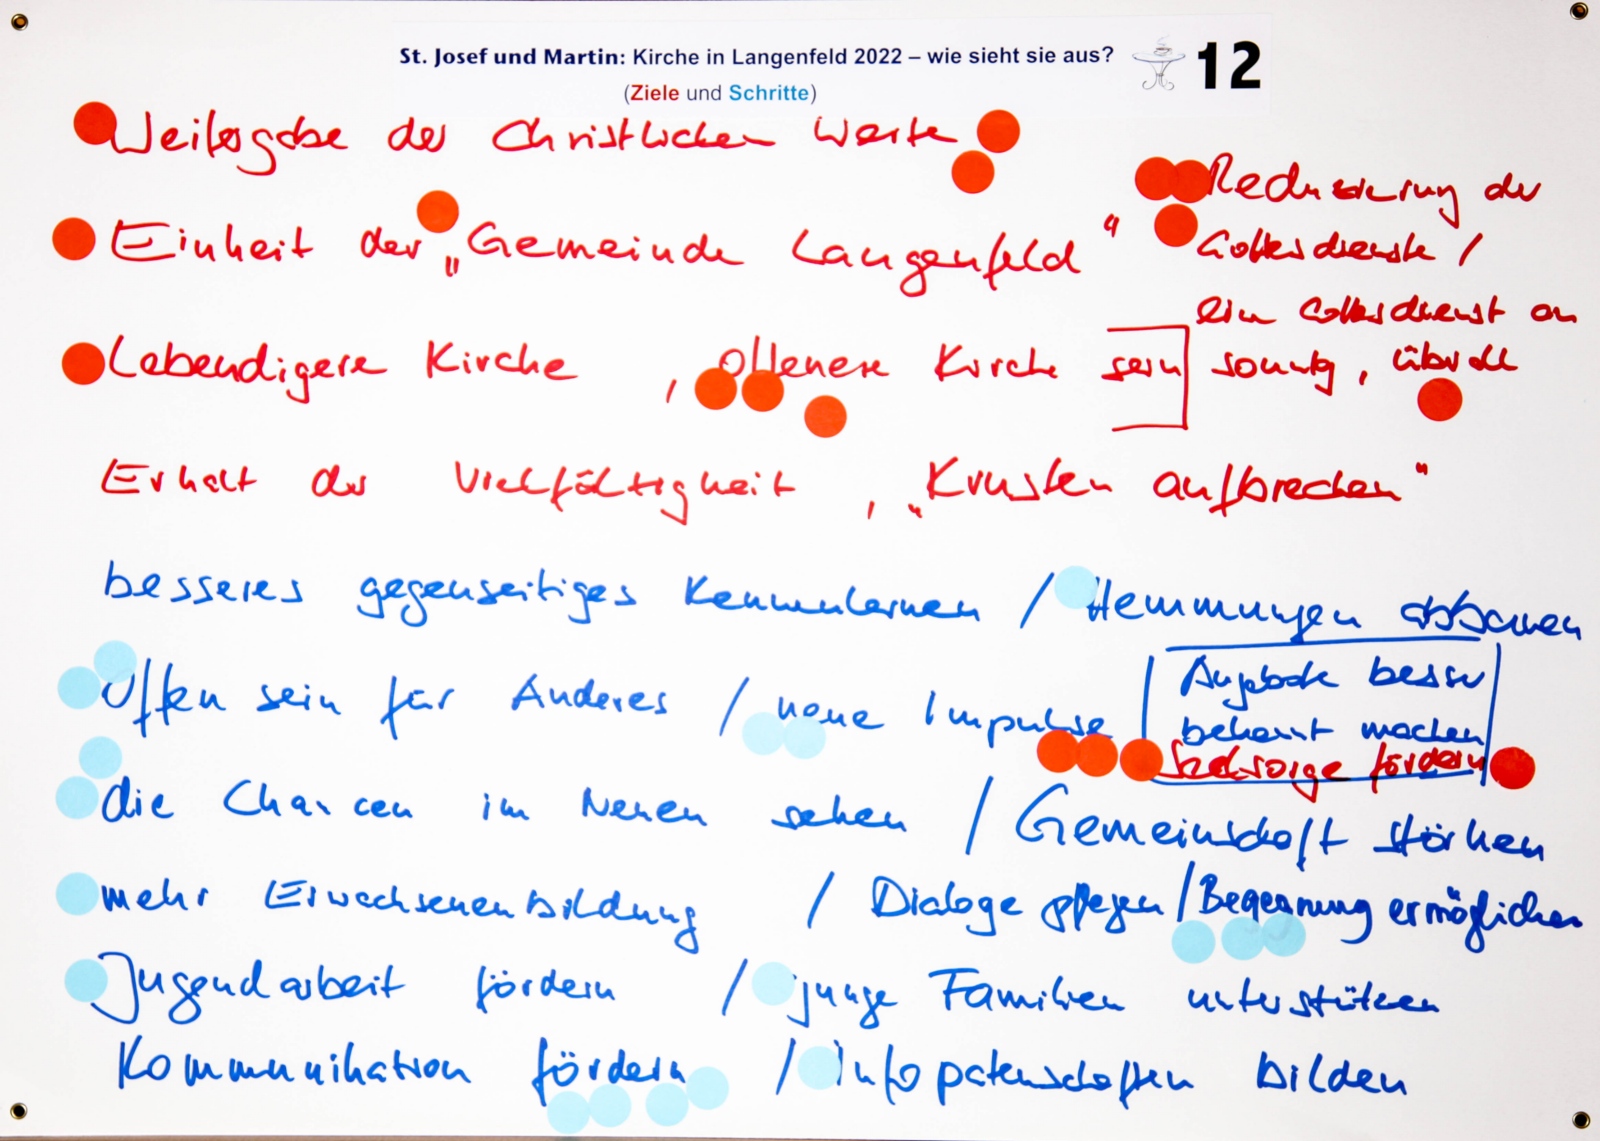 St. Josef und Martin: Kirche in Langenfeld 2022 – wie sieht sie aus? 12
(Ziele und Schritte)
Weitergabe der Christlichen Werte
Reduzierung der
Gottesdienste /
ein Gottesdienst am
sonntg, überall
Einheit der „Gemeinde Langenfeld“
Lebendigere Kirche, offenere Kirche sein
Erhalt der Vielfältigkeit, „Krusten aufbrechen“
besseres gegenseitiges Kennenlernen / Hemmungen abbauen
Offen sein für Anderes / neue Impulse
Angebote besser
bekannt machen
Seelsorge fördern
die Chancen im Neuen sehen / Gemeinschaft stärken
mehr Erwachsenenbildung / Dialoge pflegen / Begegnung ermöglichen
Jugendarbeit fördern / junge Familien unterstützen
Kommunikation fördern / Infopatenschaften bilden